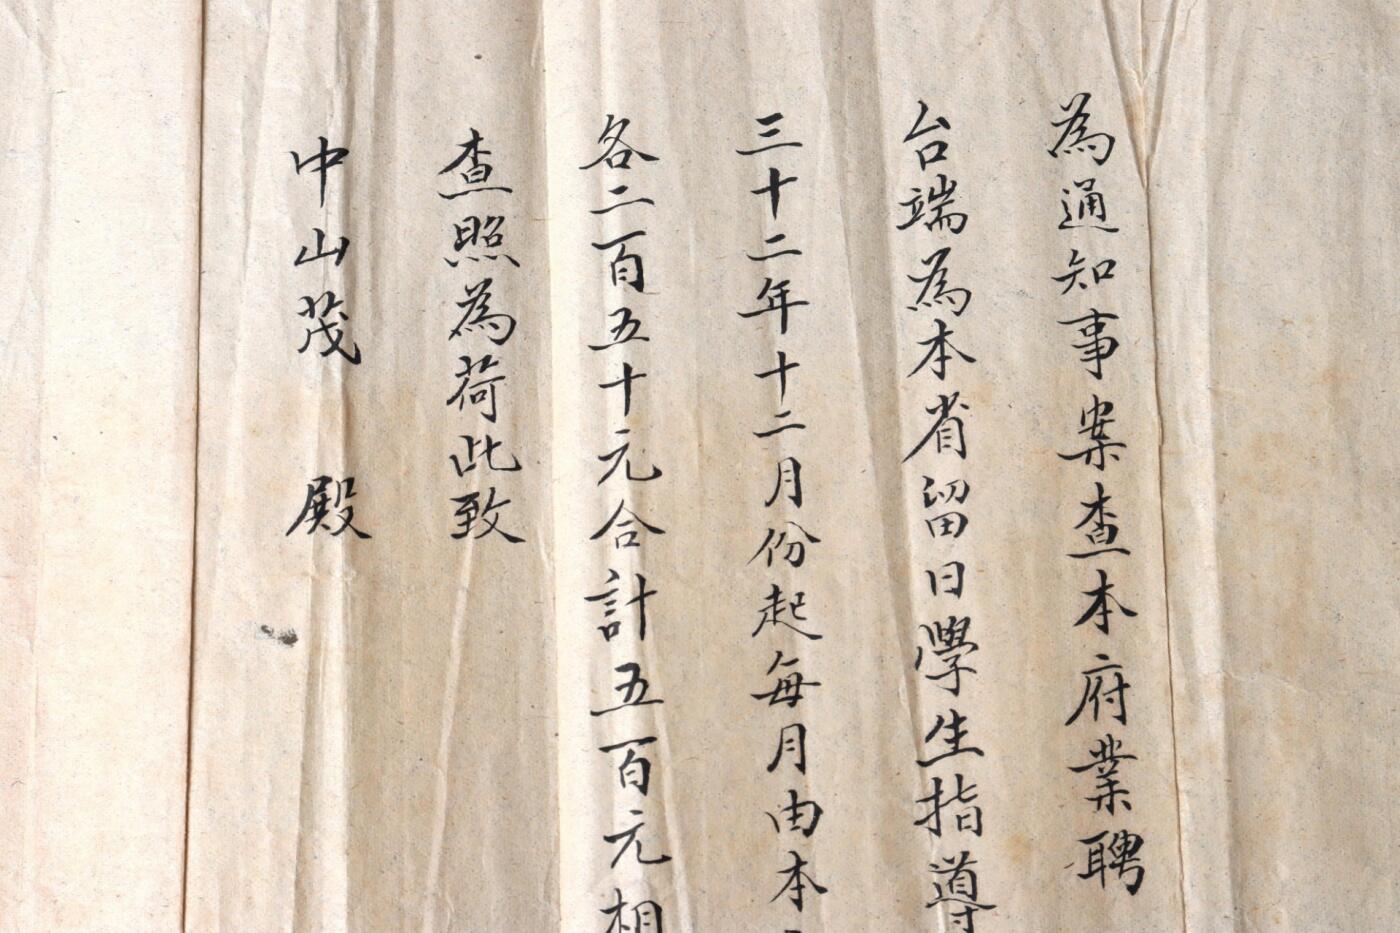 為通知事案查本府業聘
台端為本省留日學生指導
三十二年十二月份起每月由本
各二百五十元合計五百元相
查照為荷此致
中山茂 殿